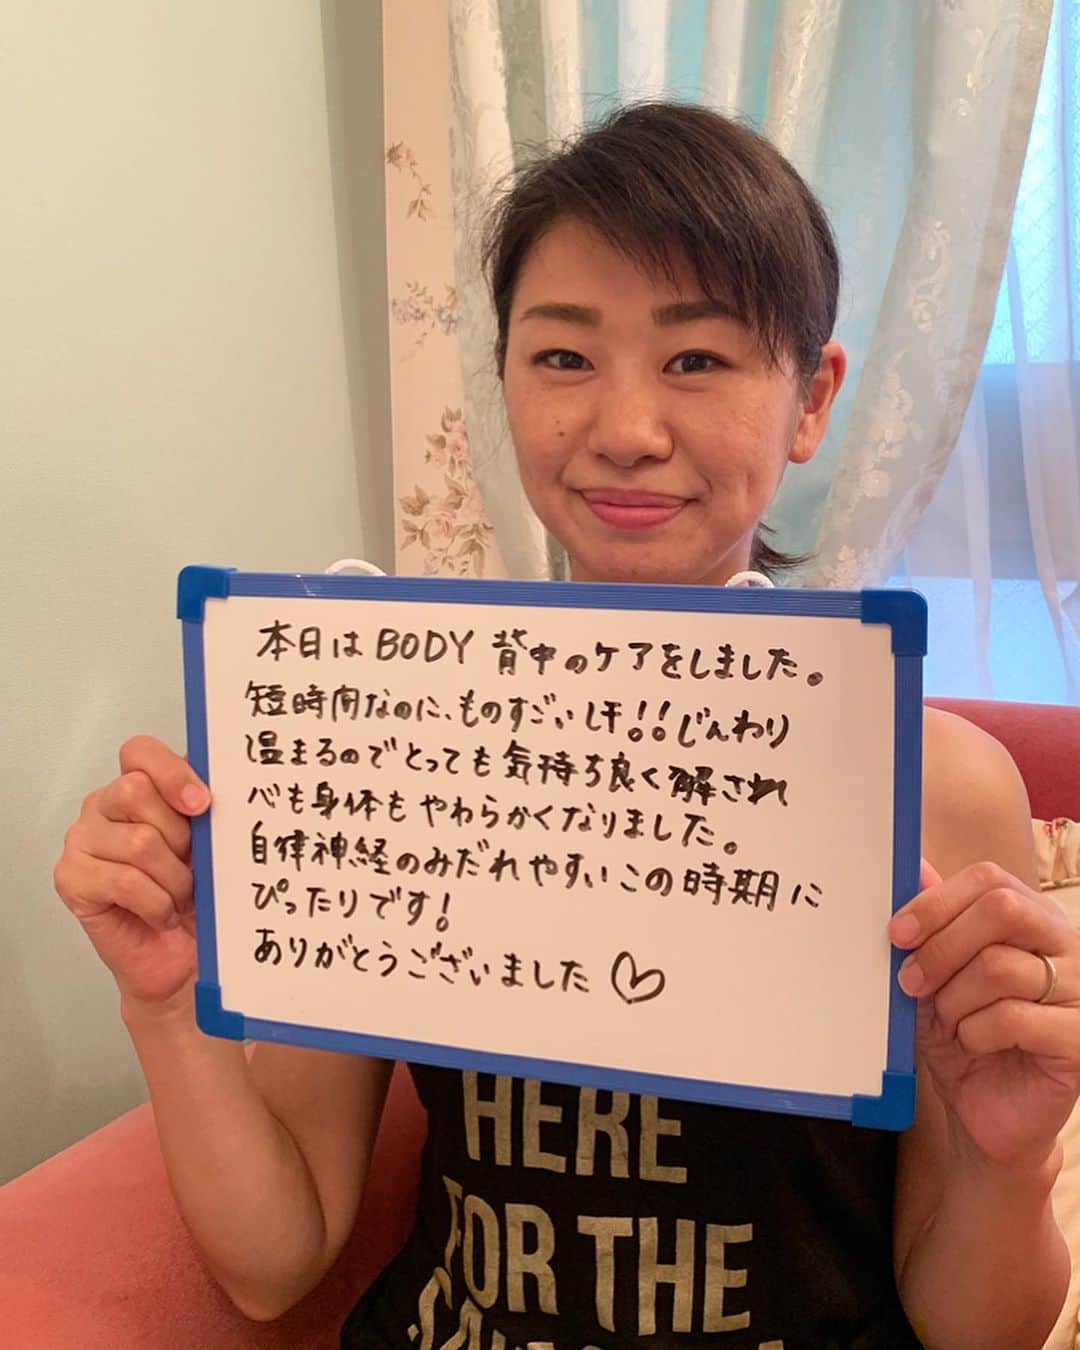 本日はBODY 背中のケアをしました。
短時間なのに、ものすごい汗!!じんわり
温まるのでとっても気持ち良く解され
心も身体もやわらかくなりました。
自律神経のみだれやすいこの時期に
ぴったりです!
ありがとうございました♡
HERE
FOR THE